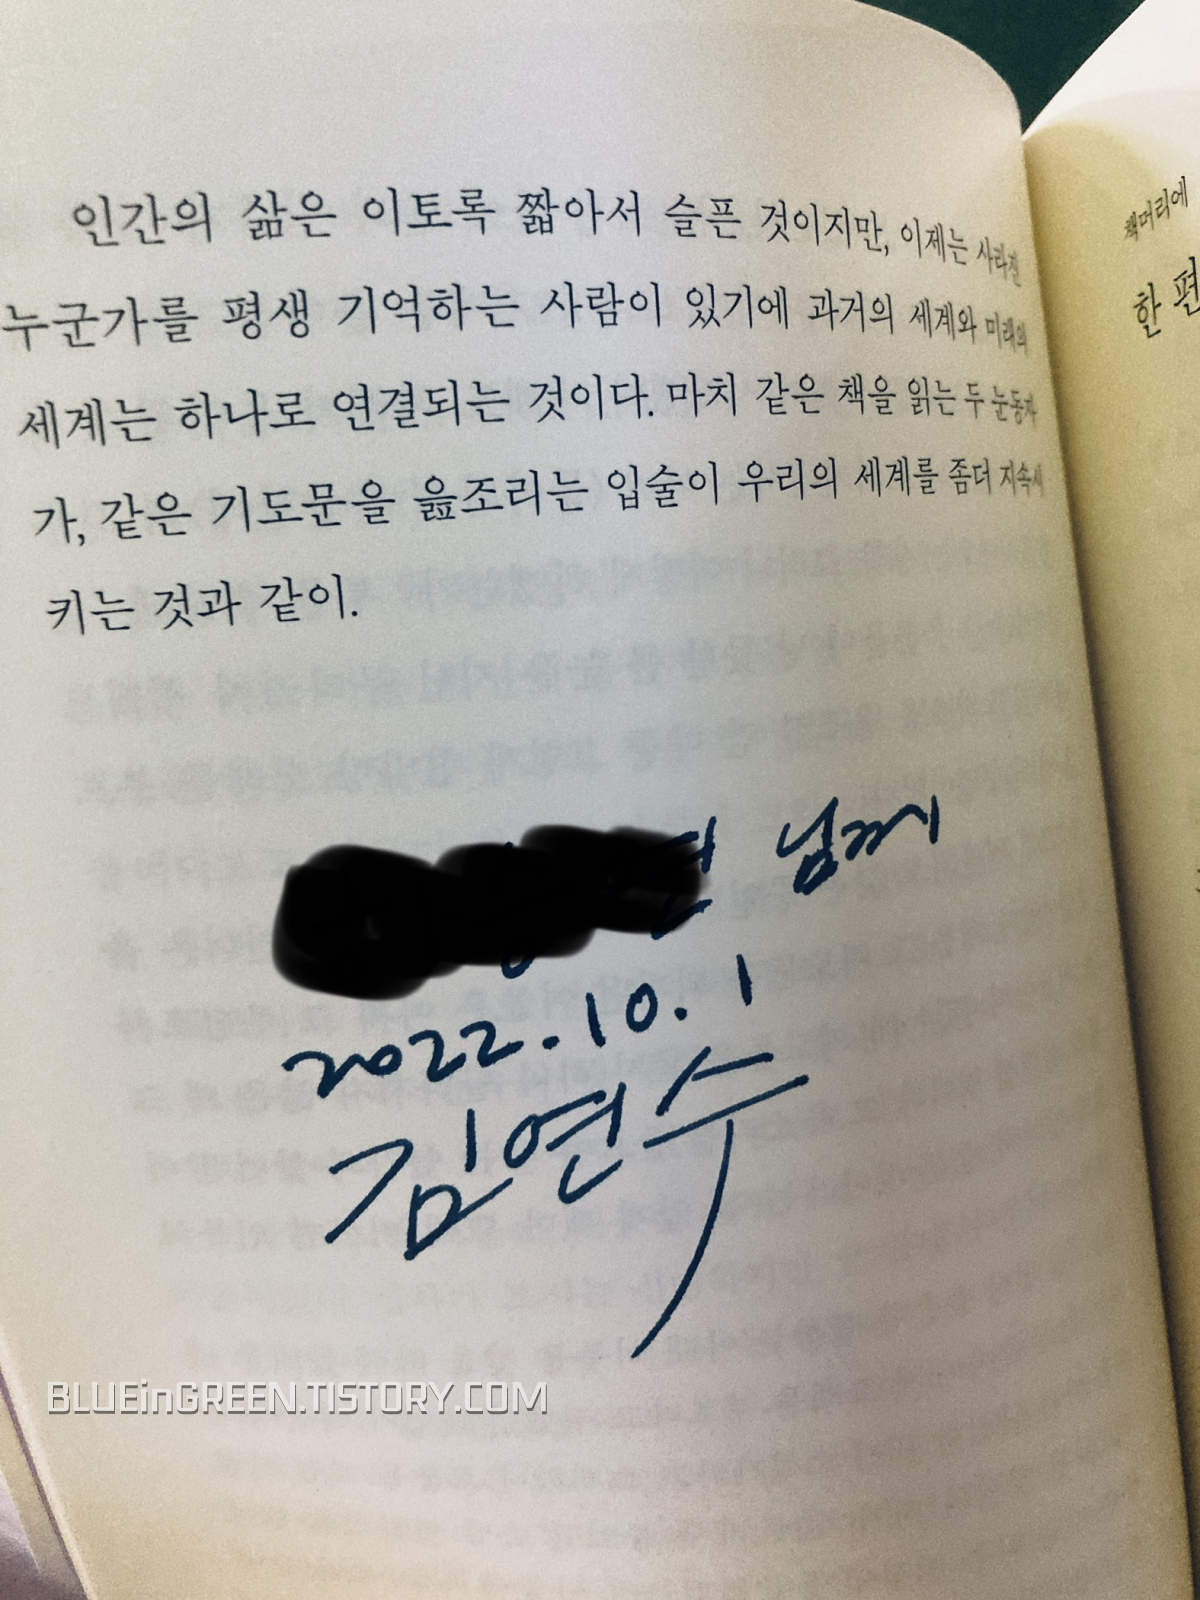 인간의 삶은 이토록 짧아서 슬픈 것이지만, 이제는 사라진
누군가를 평생 기억하는 사람이 있기에 과거의 세계와 미래의
세계는 하나로 연결되는 것이다. 마치 같은 책을 읽는 두 눈동자
가, 같은 기도문을 읊조리는 입술이 우리의 세계를 좀더 지속시
키는 것과 같이.
님께
2022.10.1
김연수
BLUEinGREEN.TISTORY.COM
책머리에
한 편